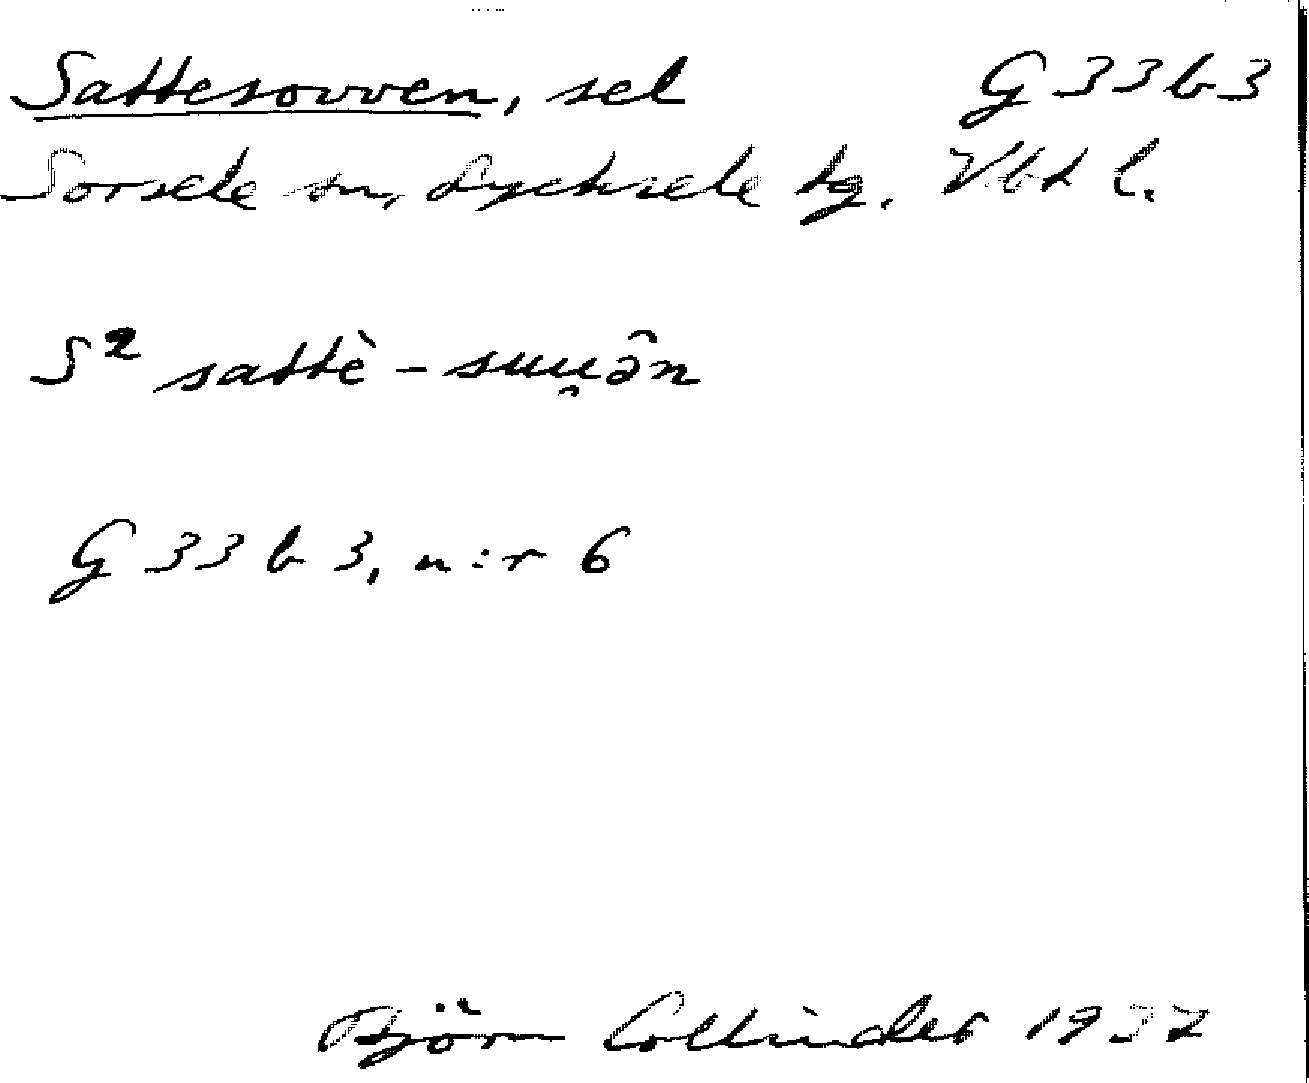 Sattesovven, sel G 33 b 3
Sorsele sn, Lycksele tg. Vbt l.
S² sattè - suu̯ə̑n
G 33 b 3, n:r 6
Björn Collinder 1937